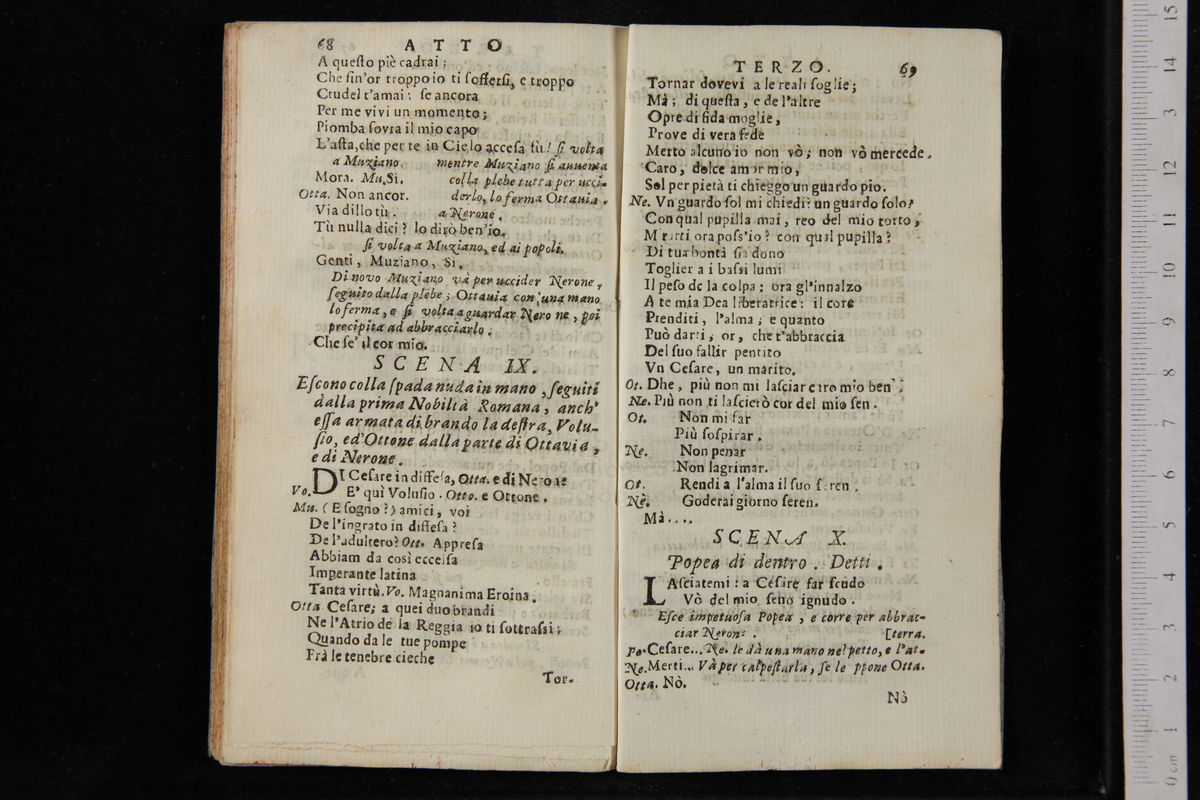 68 ATTO
A queſto piè cadrai;
Che ſin'or troppo io ti ſofferſi, e troppo
Ctudel t'amai: ſe ancora
Per me vivi un momento;
Piomba ſovra il mio capo
L'aſta, che per te in Cielo acceſa fù! ſi volta
a Muziano. mentre Muziano ſi auuenta
Mora. Mu. Sì. colla plebe tutta per ucci-
Otta. Non ancor. derlo, lo ferma Ottauia.
Via dillo tù. a Nerone.
Tù nulla dici? Io dirò ben'io.
ſi volta a Muziano, ed ai popoli.
Genti, Muziano, Sì.
Di novo Muziano và per uccider Nerone,
ſeguito dalla plebe; Ottauia con una mano
lo ferma, e ſi volta a guardar Nero ne, poi
precipita ad abbracciarlo.
Che ſe' il cor mio.
SCENA IX.
Eſcono colla ſpada nuda in mano, ſeguiti
dalla prima Nobiltà Romana, anch'
eſſa armata di brando la deſtra, Volu-
ſio, ed'Ottone dalla parte di Ottavia,
e di Nerone.
Vo. DI Ceſare in diffeſa, Otta. e di Nerone
E' quì Voluſio. Otto. e Ottone.
Mu. (E ſogno?) amici, voi
De l'ingrato in diffeſa?
De l'adultero? Ott. Appreſa
Abbiam da così ecceiſa
Imperante latina
Tanta virtù. Vo. Magnanima Eroina.
Otta Ceſare; a quei duo brandi
Ne l'Atrio de la Reggia io ti ſottraſſi;
Quando da le tue pompe
Frà le tenebre cieche
Tor-
TERZO. 69
Tornar dovevi a le reali ſoglie;
Mà; di queſta, e de l'altre
Opre di fida moglie,
Prove di vera fede
Merto alcuno io non vò; non vò mercede.
Caro, dolce amor mio,
Sol per pietà ti chieggo un guardo pio.
Ne. Vn guardo ſol mi chiedi? un guardo ſolo?
Con qual pupilla mai, reo del mio torto,
Mirarti ora poſs'io? con qual pupilla?
Di tua bontà ſia dono
Toglier a i baſsi lumi
Il peſo de la colpa: ora gl'innalzo
A te mia Dea liberatrice: il core
Prenditi, l'alma; e quanto
Può darti, or, che t'abbraccia
Del ſuo fallir pentito
Vn Ceſare, un marito.
Ot. Dhe, più non mi laſciar caro mio ben;
Ne. Più non ti laſcierò cor del mio ſen.
Ot. Non mi far
Più ſoſpirar.
Ne. Non penar
Non lagrimar.
Ot. Rendi a l'alma il ſuo ſeren.
Nè. Goderai giorno ſeren.
Mà....
SCENA X.
Popea di dentro. Detti.
LAſciatemi: a Ceſare far ſcudo
Vò del mio ſeno ignudo.
Eſce impetuoſa Popea, e corre per abbrac-
ciar Nerone. [terra.
Po. Ceſare... Ne. le dà una mano nel petto, e l'at-
Ne. Merti... Và per calpeſtarla, ſe le ppone Otta.
Otta. Nò.
Nò